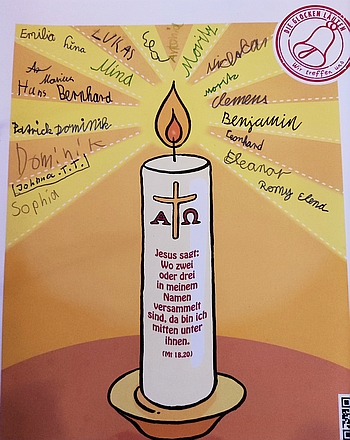 Emilia
Lina
LUKAS
Lea
Antonia
Moritz
Nicklas
DIE GLOCKEN LÄUTEN
Wir treffen uns
Mina
Moritz
Marius
Hans Bernhard
Clemens
Benjamin
Patrick Dominik
Leonhard
Dominik
Eleanor
Johanna .T.T.
Romy Elena
Sophia
A Ω
Jesus sagt:
Wo zwei
oder drei
in meinem
Namen
versammelt
sind, da bin ich
mitten unter
ihnen.
(Mt 18,20)